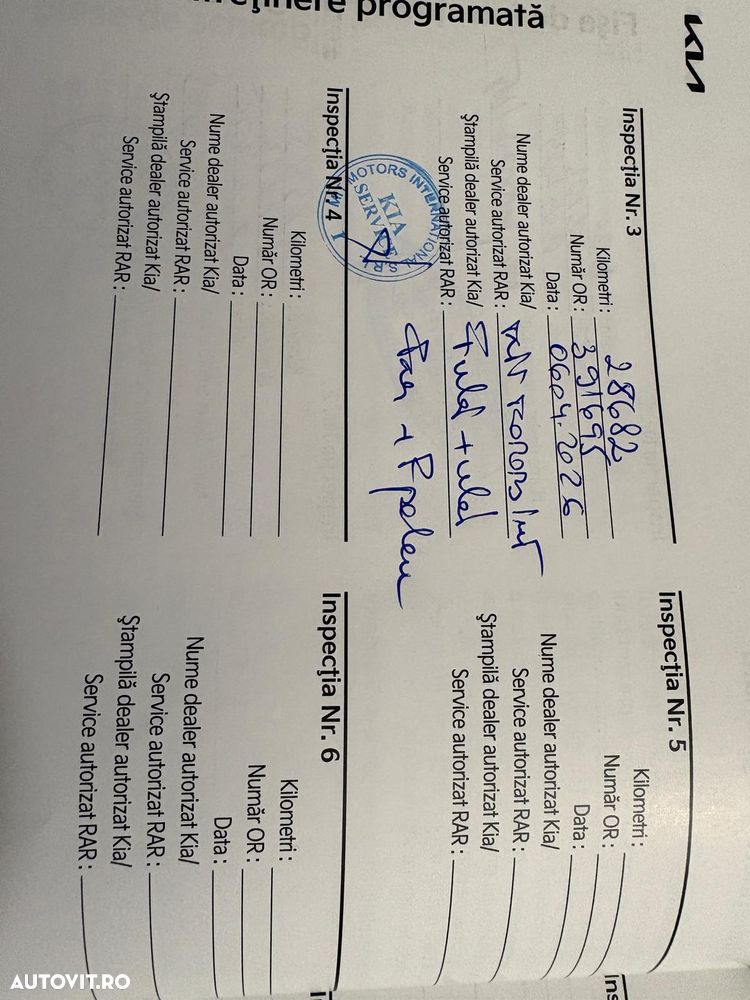 întreținere programată
KIA
Inspecția Nr. 3
Kilometri : 28682
Număr OR : 391695
Data : 06.04.2026
Nume dealer autorizat Kia/
Service autorizat RAR :
Ștampilă dealer autorizat Kia/
Service autorizat RAR :
MOTORS INTERNATIONAL
KIA
SERVICE
Inspecția Nr. 4
Kilometri :
Număr OR :
Data :
Nume dealer autorizat Kia/
Service autorizat RAR :
Ștampilă dealer autorizat Kia/
Service autorizat RAR :
Inspecția Nr. 5
Kilometri :
Număr OR :
Data :
Nume dealer autorizat Kia/
Service autorizat RAR :
Ștampilă dealer autorizat Kia/
Service autorizat RAR :
Inspecția Nr. 6
Kilometri :
Număr OR :
Data :
Nume dealer autorizat Kia/
Service autorizat RAR :
Ștampilă dealer autorizat Kia/
Service autorizat RAR :
AUTOVIT.RO